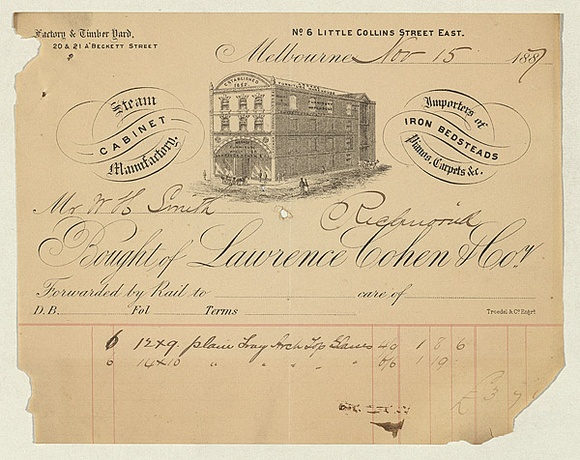 Factory & Timber Yard,
20 & 21 A'Beckett Street
No 6 Little Collins Street East.
Melbourne Nov 15 1887
ESTABLISHED
1852
Steam
CABINET
Manufactory.
Importers of
IRON BEDSTEADS
Pianos, Carpets &c.
Mr W H Smith
Richmond
Bought of Lawrence Cohen & Co.
Forwarded by Rail to care of
D.B. Fol Terms
Troedel & Co Engrs
6 12x9 plain Tray Arch Top 1 8 6
6 14x10 " " " " 1 19
£3 7